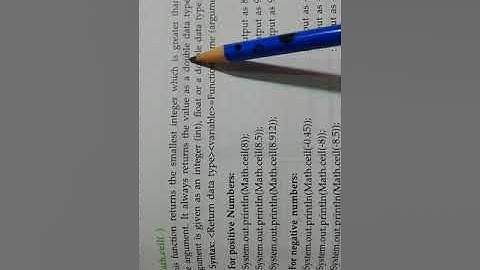 ath.ceil( )
is function returns the smallest integer which is greater than
e argument. It always returns the value as a double data type
gument is given as an integer (int), float or a double data type
Syntax: <Return data type><variable>=Function me (argume
For positive Numbers:
System.out.println(Math.ceil(8)); tput as 8
System.out.println(Math.ceil(8.5)); tput as
System.out.println(Math.ceil(8.912)); output as
For negative numbers:
System.out.println(Math.ceil(-0.45)); tput as
System.out.println(Math.ceil(-8)); tput as
System.out.println(Math.ceil(-8.5)); tput as